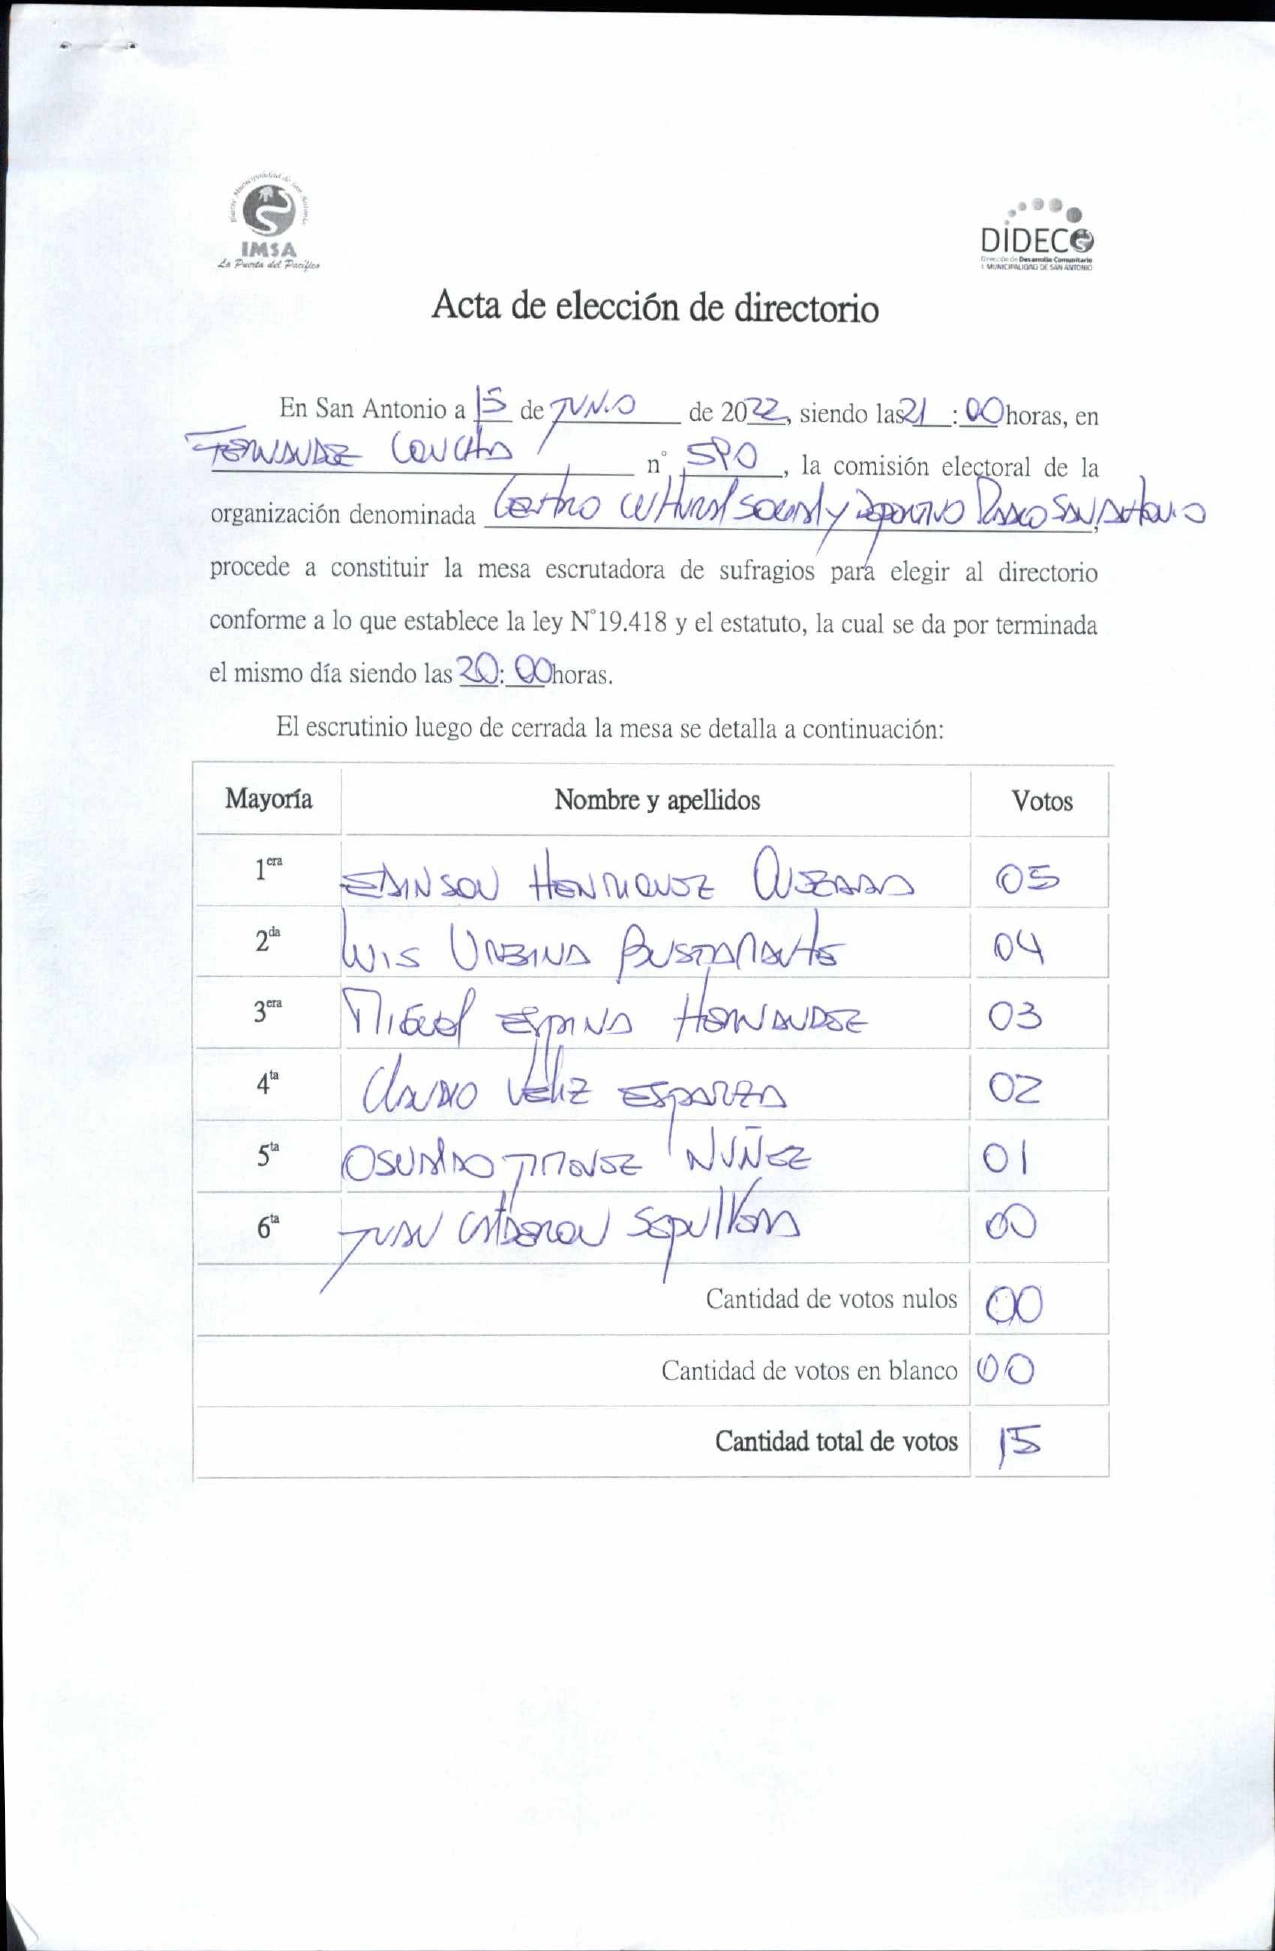 IMSA
La Puerta del Pacífico
DIDECO
Dirección de Desarrollo Comunitario
I. MUNICIPALIDAD DE SAN ANTONIO
Acta de elección de directorio
En San Antonio a 15 de JUNIO de 2022, siendo las 21:00 horas, en
n° , la comisión electoral de la
organización denominada Centro Cultural Social y Deportivo San Antonio,
procede a constituir la mesa escrutadora de sufragios para elegir al directorio
conforme a lo que establece la ley N°19.418 y el estatuto, la cual se da por terminada
el mismo día siendo las 20:00 horas.
El escrutinio luego de cerrada la mesa se detalla a continuación:
Mayoría Nombre y apellidos Votos
1era EDINSON HENRIQUEZ 05
2da LUIS URBINA BUSTAMANTE 04
3era MIGUEL ESPINA HERNANDEZ 03
4ta Claudio VELIZ ESPARZA 02
5ta OSVALDO NUÑEZ 01
6ta JUAN CALDERON SEPULVEDA 00
Cantidad de votos nulos 00
Cantidad de votos en blanco 00
Cantidad total de votos 15